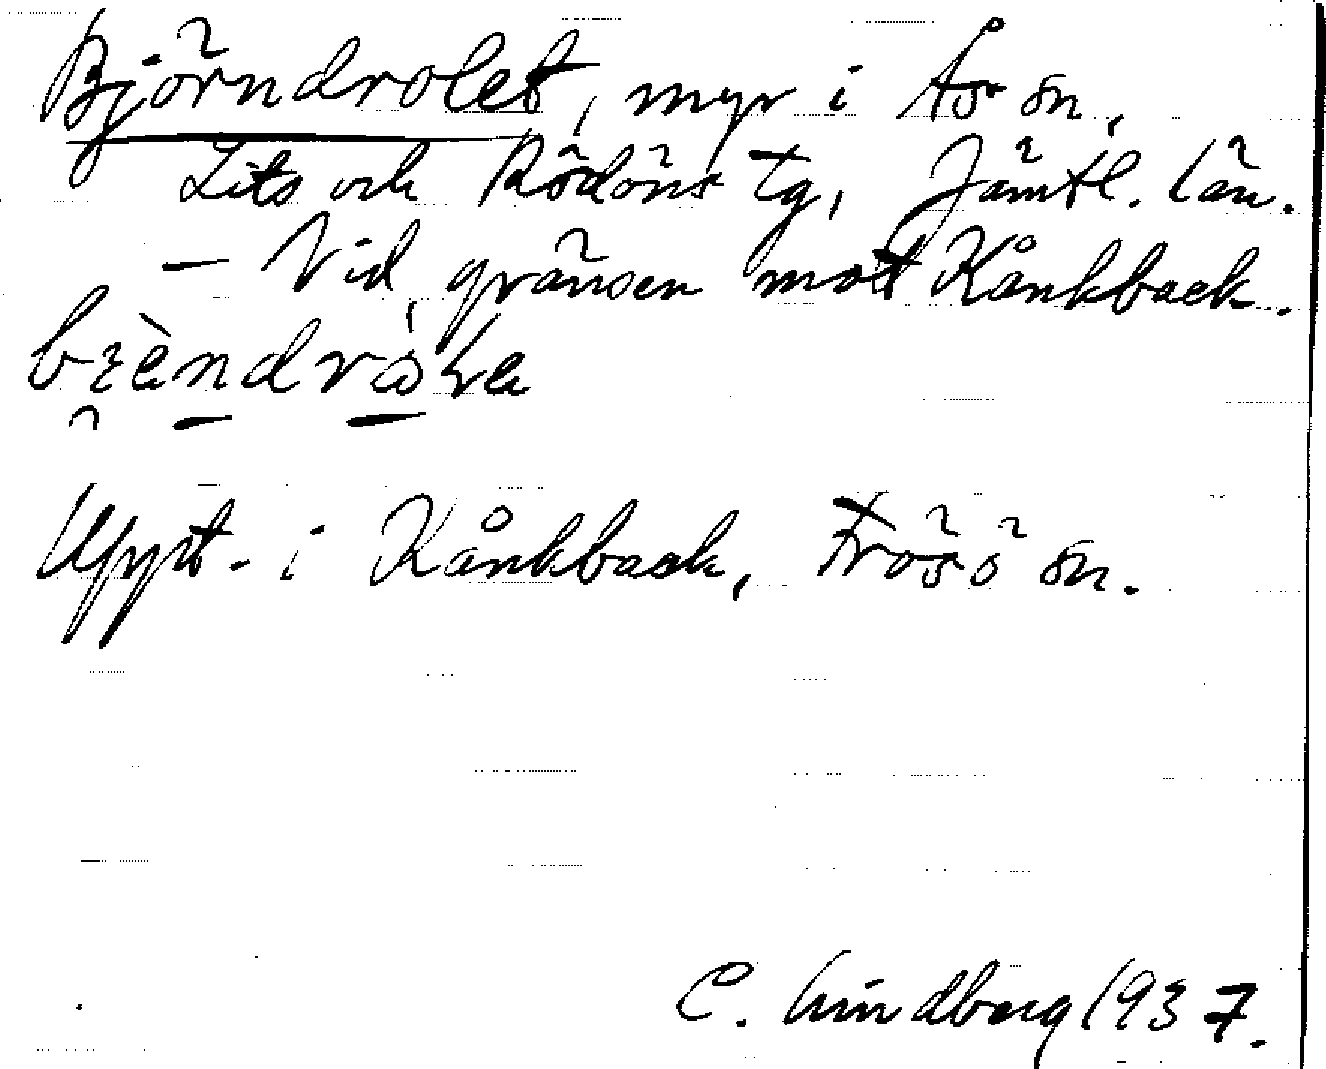 Björndrolet, myr i Ås sn,
Lits och Rödöns tg, Jämtl. län.
– Vid gränsen mot Kånkback.
Uppt. i Kånkback, Frösö sn.
C. Lindberg 1937.